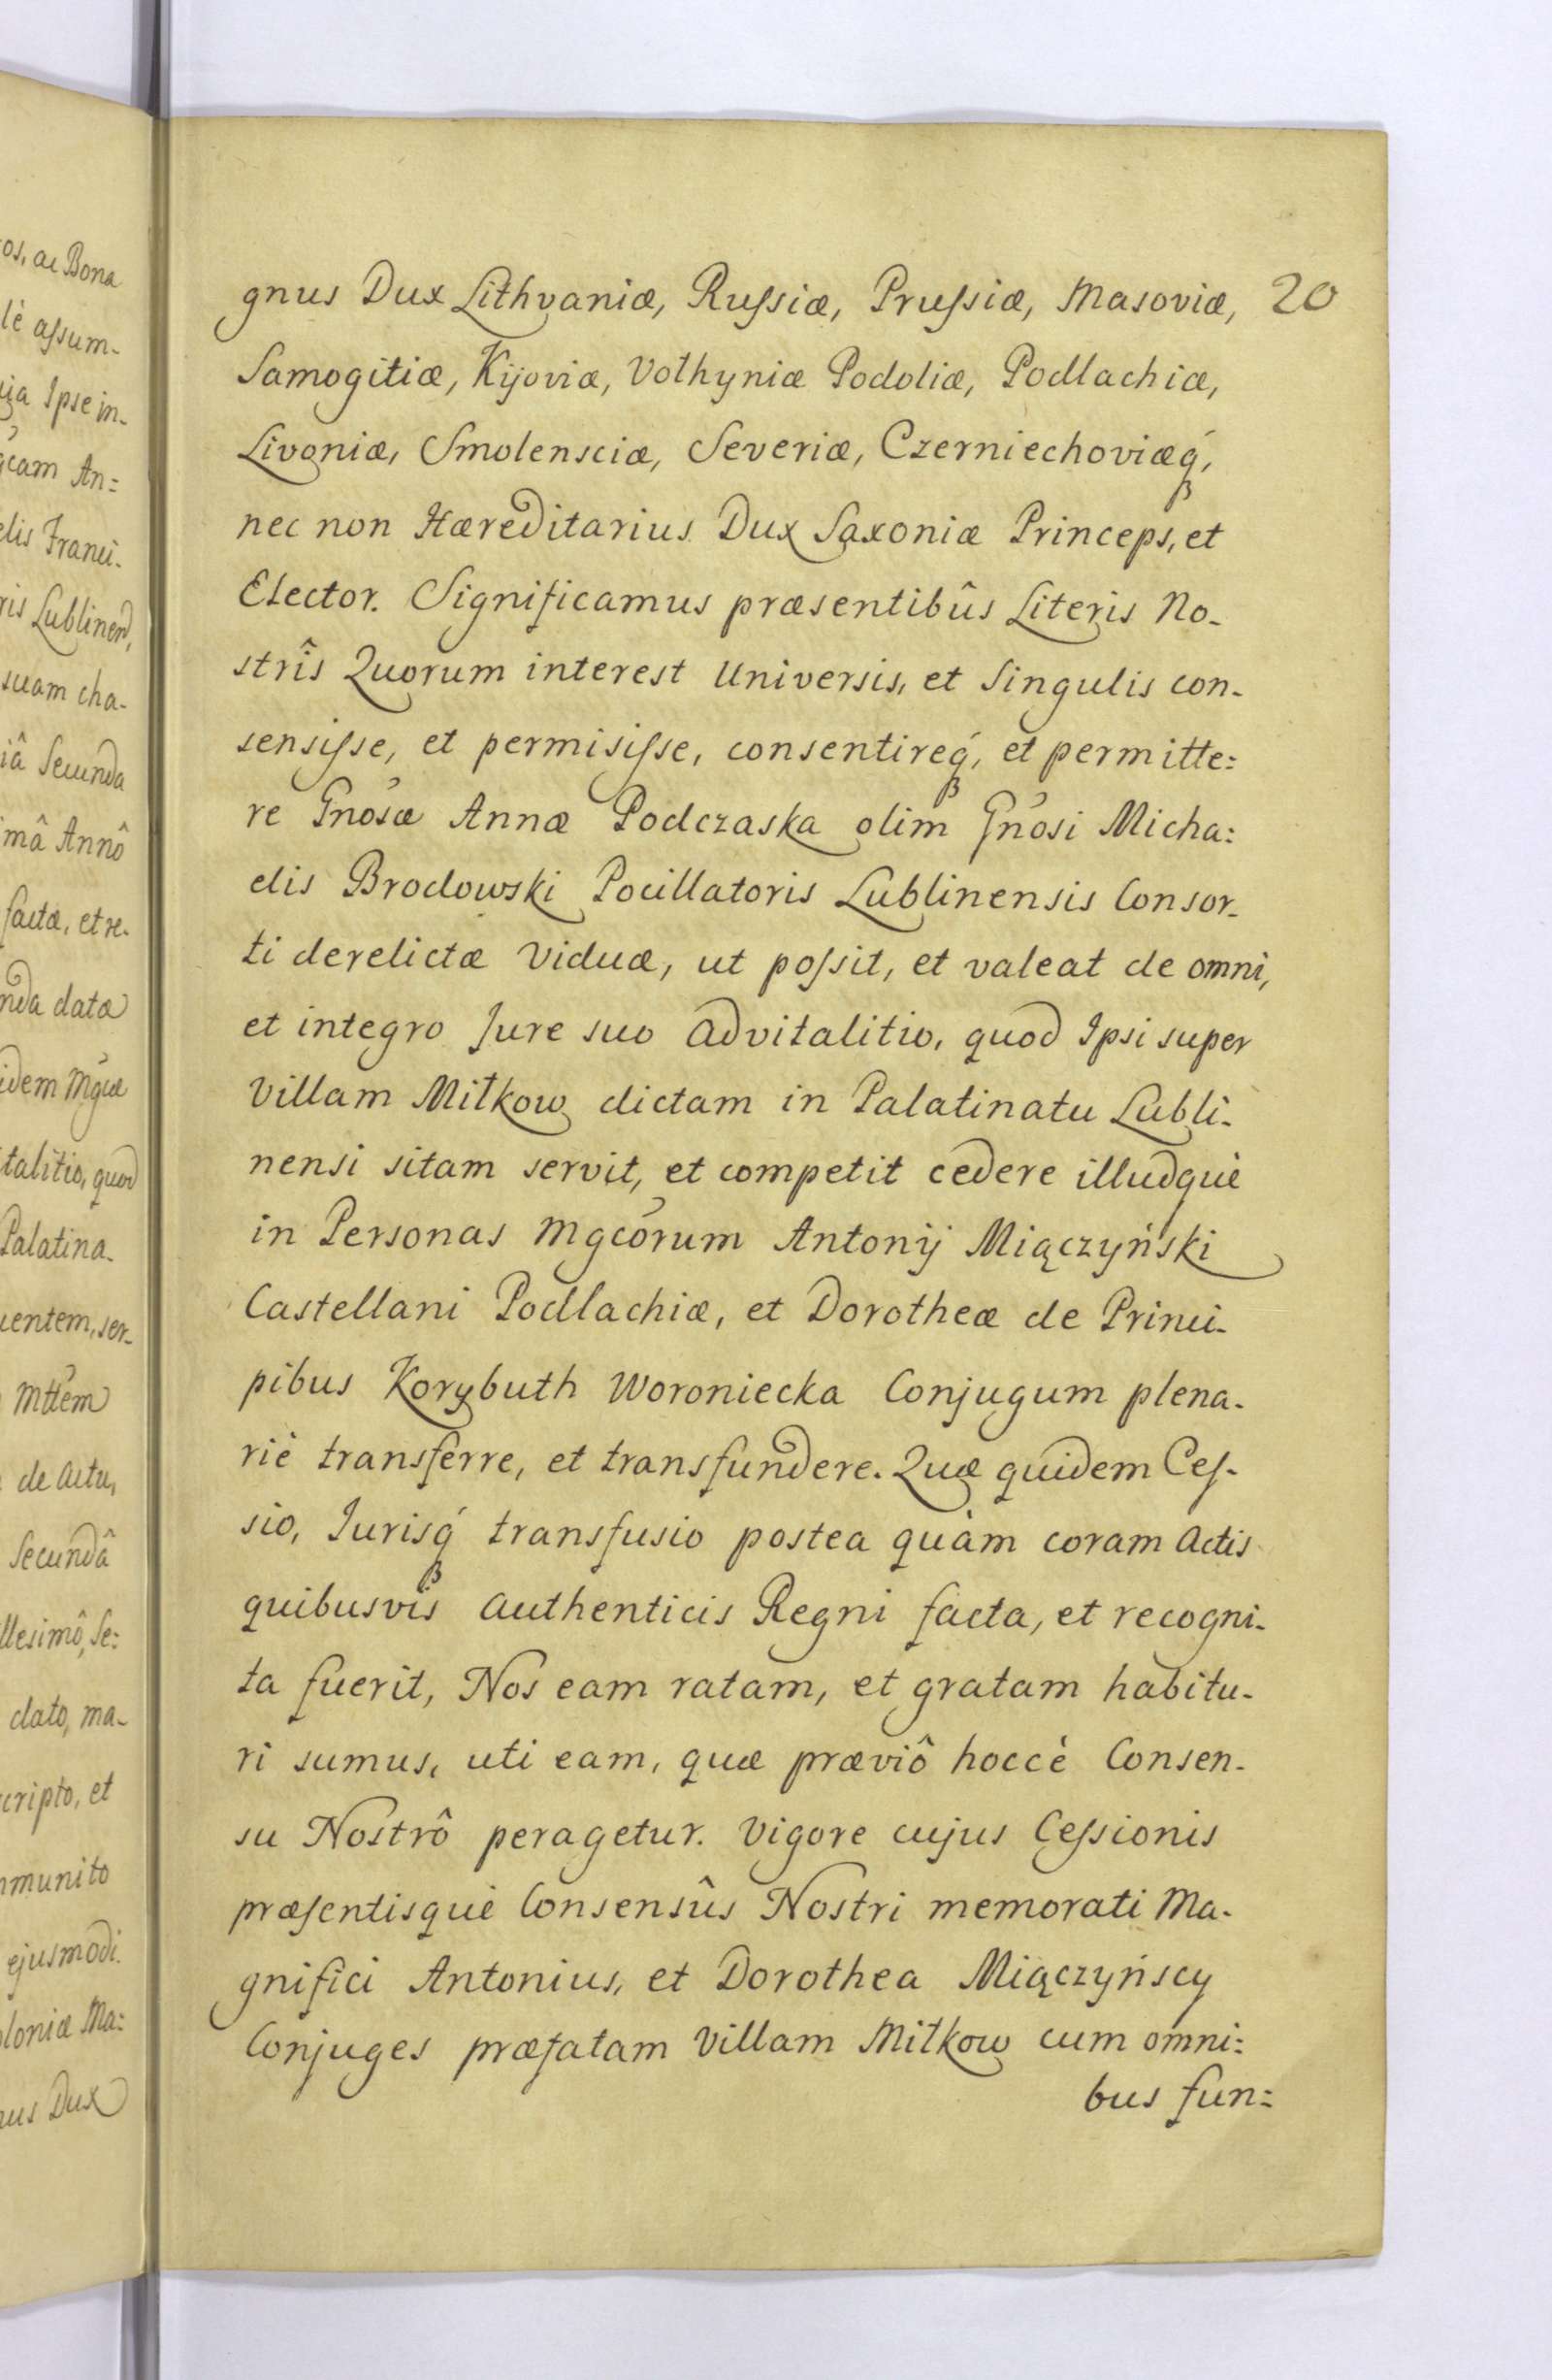 os, ac Bona
lè assum-
ija Ipse in-
gcam An=
elis Franci-
ris Lublinen,
suam cha-
iâ Secunda
imâ Annô
factæ, et re-
nda data
idem Mgcæ
talitio, quod
Palatina-
uentem, ser-
Mttem
de actu,
Secundâ
llesimô, Se:
dato, ma-
cripto, et
mmunito
ejusmodi
oloniæ Ma:
nus Dux
gnus Dux Lithvaniæ, Russiæ, Prussiæ, Masoviæ, 20
Samogitiæ, Kijoviæ, Volhyniæ Podoliæ, Podlachiæ,
Livoniæ, Smolensciæ, Severiæ, Czerniechoviæq́,
nec non Hæreditarius Dux Saxoniæ Princeps, et
Elector. Significamus præsentibûs Literis No-
strîs Quorum interest Universis, et Singulis con-
sensisse, et permisisse, consentireq́, et permitte:
re Gnósæ Annæ Podczaska olim Gnósi Micha:
elis Brodowski Pocillatoris Lublinensis Consor-
ti derelictæ Viduæ, ut possit, et valeat de omni,
et integro Jure suo advitalitio, quod Ipsi super
Villam Miłkow dictam in Palatinatu Lubli-
nensi sitam servit, et competit cedere illudquè
in Personas Mgcórum Antonij Miączyński
Castellani Podlachiæ, et Dorotheæ de Princi-
pibus Korybuth Woroniecka Conjugum plena-
riè transferre, et transfundere. Quæ quidem Ces-
sio, Jurisq́ transfusio postea quàm coram Actis
quibusvis authenticis Regni facta, et recogni-
ta fuerit, Nos eam ratam, et gratam habitu-
ri sumus, uti eam, quæ præviô hoccè Consen-
su Nostrô peragetur. Vigore cujus Cessionis
præsentisquè Consensûs Nostri memorati Ma-
gnifici Antonius, et Dorothea Miączyńscy
Conjuges præfatam Villam Miłkow cum omni:
bus fun: